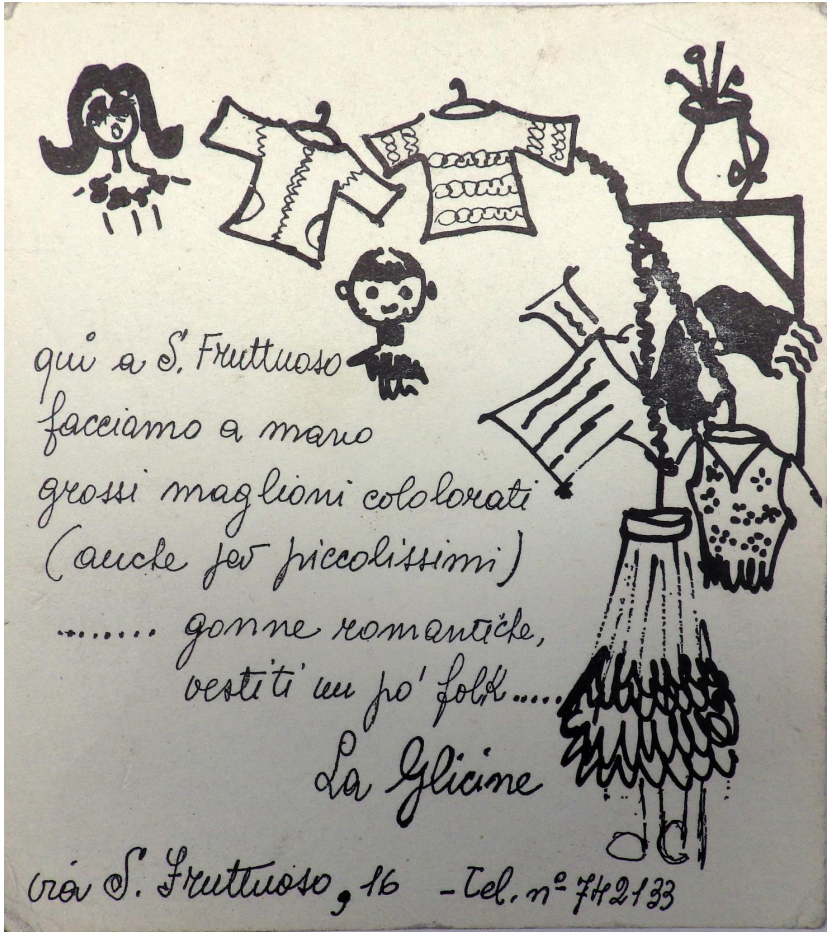 qui a S. Fruttuoso
facciamo a mano
grossi maglioni cololorati
(anche per piccolissimi)
........ gonne romantiche,
vestiti un po' folk.....
La Glicine
via S. Fruttuoso, 16 - Tel. nº 742133